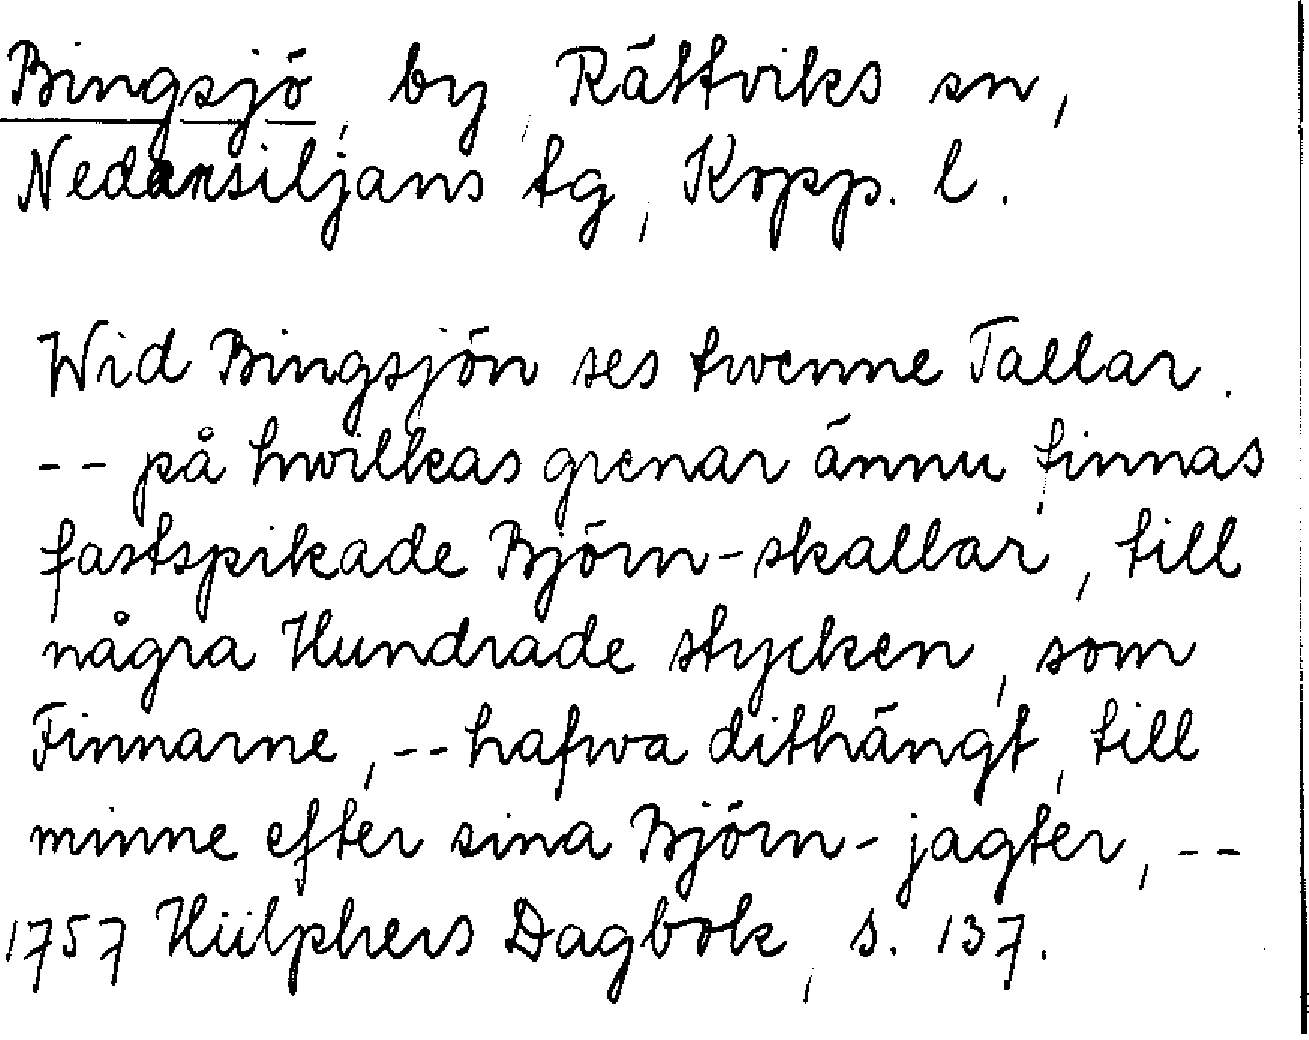 Bingsjö, by, Rättviks sn,
Nedansiljans tg, Kopp. l.
Wid Bingsjön ses twenne Tallar.
-- på hwilkas grenar ännu finnas
fastspikade Björn-skallar, till
några Hundrade stycken, som
Finnarne, -- hafwa dithängt, till
minne efter sina Björn-jagter, --
1757 Hülphers Dagbok, s. 137.